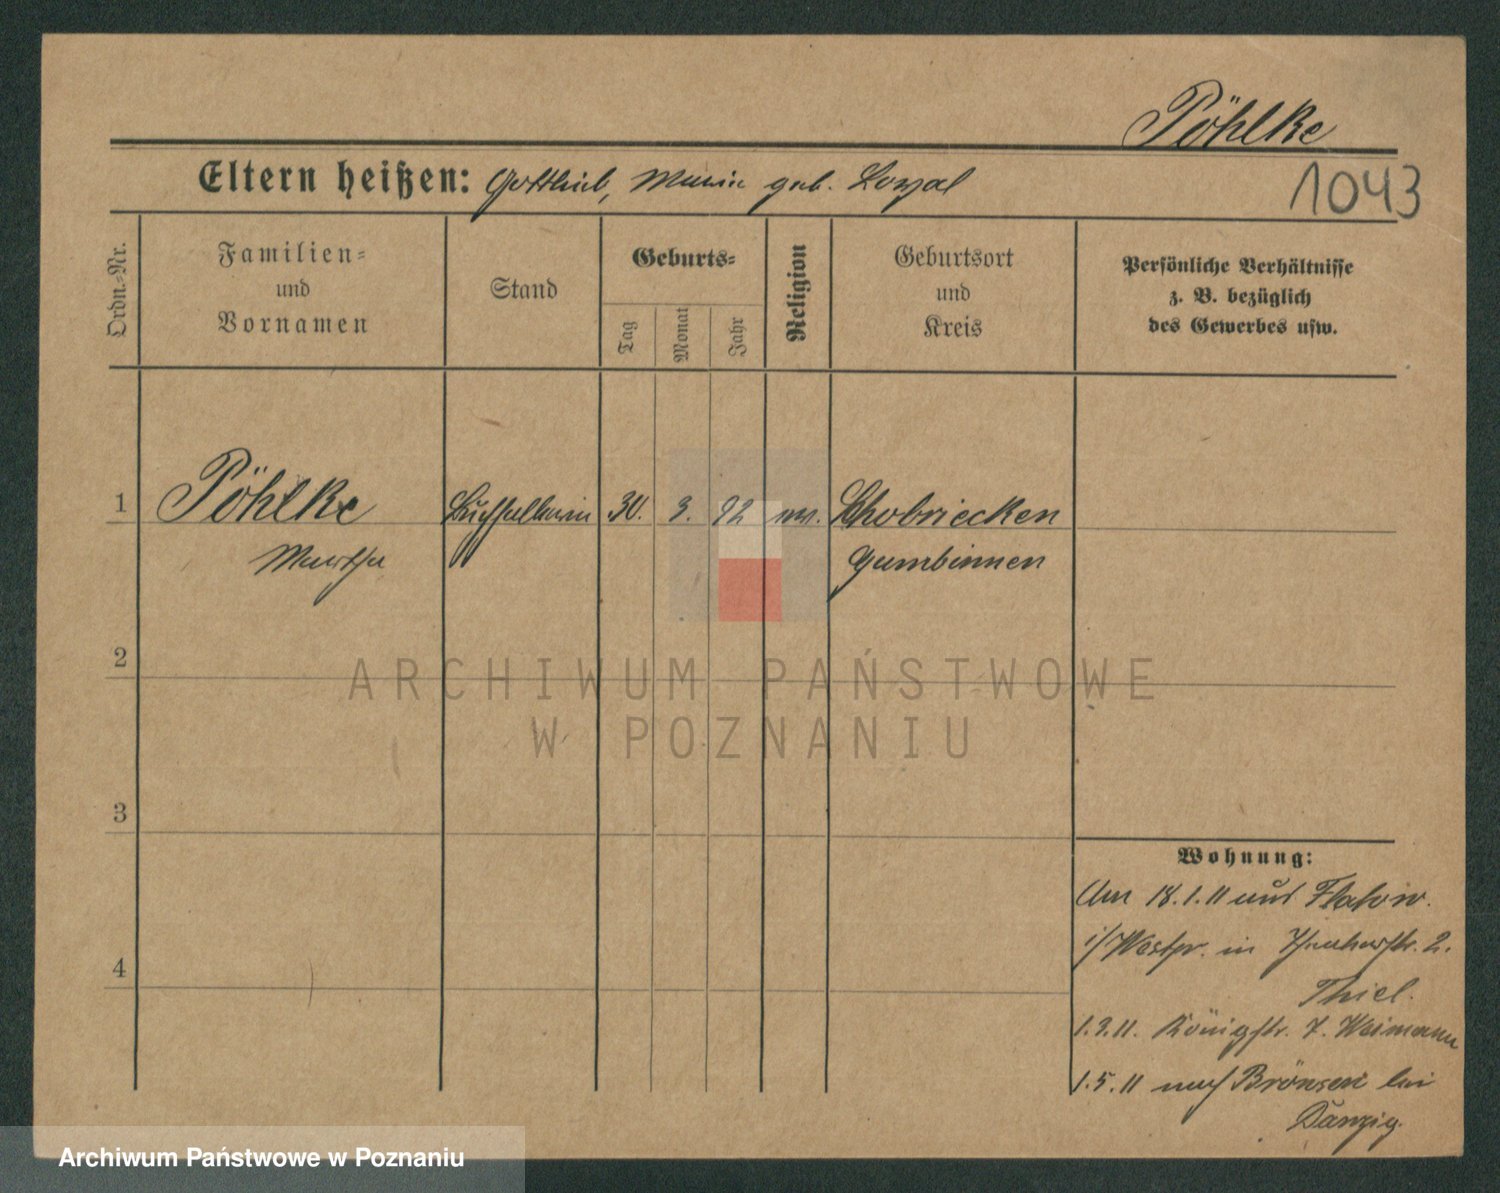 Pöhlke
1043
Eltern heißen: Gottlieb, Marie geb. Lozal
Ordn.-Nr.
Familien-
und
Vornamen
Stand
Geburts-
Tag
Monat
Jahr
Religion
Geburtsort
und
Kreis
Persönliche Verhältnisse
z. B. bezüglich
des Gewerbes usw.
1
Pöhlke
Martha
30. 3. 92
Gumbinnen
2
ARCHIWUM PAŃSTWOWE
W POZNANIU
3
4
Wohnung:
Am 18.1.11 aus Flatow
i/Westpr. in 2.
Thiel.
1.3.11. Königstr. 7. Weimann
1.5.11 nach Brönsen bei
Danzig.
Archiwum Państwowe w Poznaniu